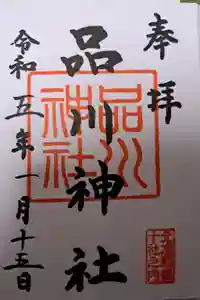 奉拝
品川神社
品川神社
令和五年一月十五日